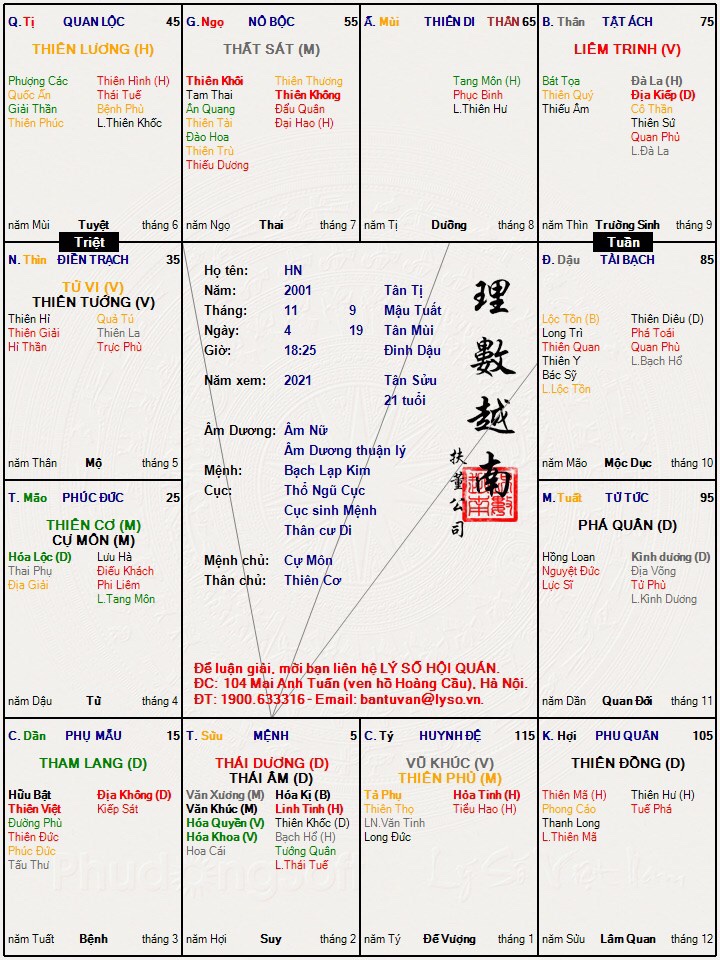 Q. Tị QUAN LỘC 45
THIÊN LƯƠNG (H)
Phượng Các Thiên Hình (H)
Quốc Ấn Thái Tuế
Giải Thần Bệnh Phù
Thiên Phúc L.Thiên Khốc
năm Mùi Tuyệt tháng 6
G. Ngọ NÔ BỘC 55
THẤT SÁT (M)
Thiên Khôi Thiên Thương
Tam Thai Thiên Không
Ân Quang Đẩu Quân
Thiên Tài Đại Hao (H)
Đào Hoa
Thiên Trù
Thiếu Dương
năm Ngọ Thai tháng 7
Ấ. Mùi THIÊN DI THÂN 65
Tang Môn (H)
Phục Binh
L.Thiên Hư
năm Tị Dưỡng tháng 8
B. Thân TẬT ÁCH 75
LIÊM TRINH (V)
Bát Tọa Đà La (H)
Thiên Quý Địa Kiếp (D)
Thiếu Âm Cô Thần
Thiên Sứ
Quan Phủ
L.Đà La
năm Thìn Trường Sinh tháng 9
Triệt
Tuần
N. Thìn ĐIỀN TRẠCH 35
TỬ VI (V)
THIÊN TƯỚNG (V)
Thiên Hỉ Quả Tú
Thiên Giải Thiên La
Hỉ Thần Trực Phù
năm Thân Mộ tháng 5
Họ tên: HN
Năm: 2001 Tân Tị
Tháng: 11 9 Mậu Tuất
Ngày: 4 19 Tân Mùi
Giờ: 18:25 Đinh Dậu
Năm xem: 2021 Tân Sửu
21 tuổi
Âm Dương: Âm Nữ
Âm Dương thuận lý
Mệnh: Bạch Lạp Kim
Cục: Thổ Ngũ Cục
Cục sinh Mệnh
Thân cư Di
Mệnh chủ: Cự Môn
Thân chủ: Thiên Cơ
理數越南
扶董公司
Để luận giải, mời bạn liên hệ LÝ SỐ HỘI QUÁN.
ĐC: 104 Mai Anh Tuấn (ven hồ Hoàng Cầu), Hà Nội.
ĐT: 1900.633316 - Email: bantuvan@lyso.vn.
Đ. Dậu TÀI BẠCH 85
Lộc Tồn (B) Thiên Diêu (D)
Long Trì Phá Toái
Thiên Quan Quan Phù
Thiên Y L.Bạch Hổ
Bác Sỹ
L.Lộc Tồn
năm Mão Mộc Dục tháng 10
T. Mão PHÚC ĐỨC 25
THIÊN CƠ (M)
CỰ MÔN (M)
Hóa Lộc (D) Lưu Hà
Thai Phụ Điếu Khách
Địa Giải Phi Liêm
L.Tang Môn
năm Dậu Tử tháng 4
M. Tuất TỬ TỨC 95
PHÁ QUÂN (D)
Hồng Loan Kình dương (D)
Nguyệt Đức Địa Võng
Lực Sĩ Tử Phù
L.Kình Dương
năm Dần Quan Đới tháng 11
C. Dần PHỤ MẪU 15
THAM LANG (D)
Hữu Bật Địa Không (D)
Thiên Việt Kiếp Sát
Đường Phù
Thiên Đức
Phúc Đức
Tấu Thư
năm Tuất Bệnh tháng 3
T. Sửu MỆNH 5
THÁI DƯƠNG (D)
THÁI ÂM (D)
Văn Xương (M) Hóa Kị (B)
Văn Khúc (M) Linh Tinh (H)
Hóa Quyền (V) Thiên Khốc (D)
Hóa Khoa (V) Bạch Hổ (H)
Hoa Cái Tướng Quân
L.Thái Tuế
năm Hợi Suy tháng 2
C. Tý HUYNH ĐỆ 115
VŨ KHÚC (V)
THIÊN PHỦ (M)
Tả Phụ Hỏa Tinh (H)
Thiên Thọ Tiểu Hao (H)
LN.Văn Tinh
Long Đức
năm Tý Đế Vượng tháng 1
K. Hợi PHU QUÂN 105
THIÊN ĐỒNG (D)
Thiên Mã (H) Thiên Hư (H)
Phong Cáo Tuế Phá
Thanh Long
L.Thiên Mã
năm Sửu Lâm Quan tháng 12